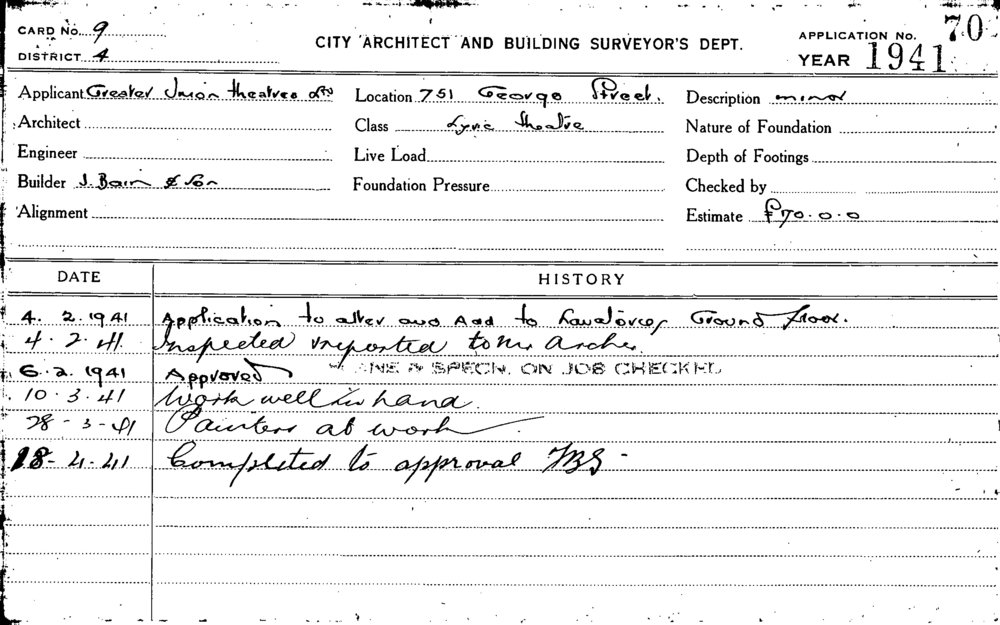 CARD No. 9
DISTRICT 4
CITY ARCHITECT AND BUILDING SURVEYOR'S DEPT.
APPLICATION No. 70
YEAR 1941
Applicant Greater Union Theatres Ltd
Location 751 George Street.
Description minor
Architect
Class Lyric Theatre
Nature of Foundation
Engineer
Live Load
Depth of Footings
Builder J. Bain & Son
Foundation Pressure
Checked by
Alignment
Estimate £70.0.0
DATE HISTORY
4. 2. 1941 Application to alter and Add to Lavatories Ground Floor.
4. 2. 41 Inspected & reported to Mr Archer.
6. 2. 1941 Approved SPECN. ON JOB CHECKED
10. 3. 41 Work well in hand.
28 - 3 - 41 Painters at work
18 - 4 - 41 Completed to approval